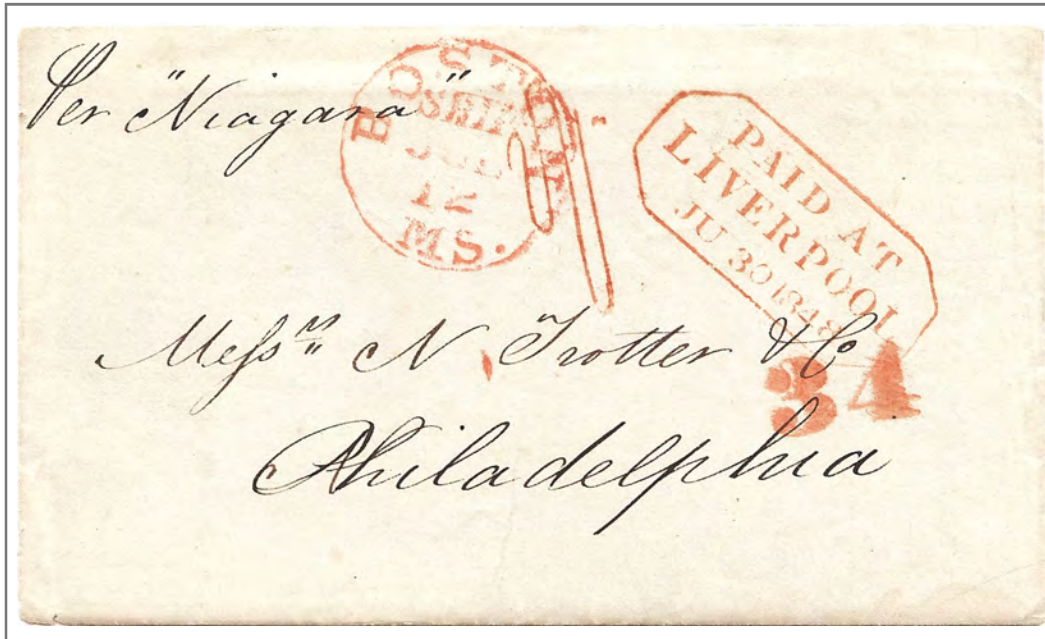 Per "Niagara"
BOSTON
SHIP
JUL
12
MS.
PAID AT
LIVERPOOL
JU 30 1848
34
Mess<sup>rs</sup> N Trotter & Co
Philadelphia